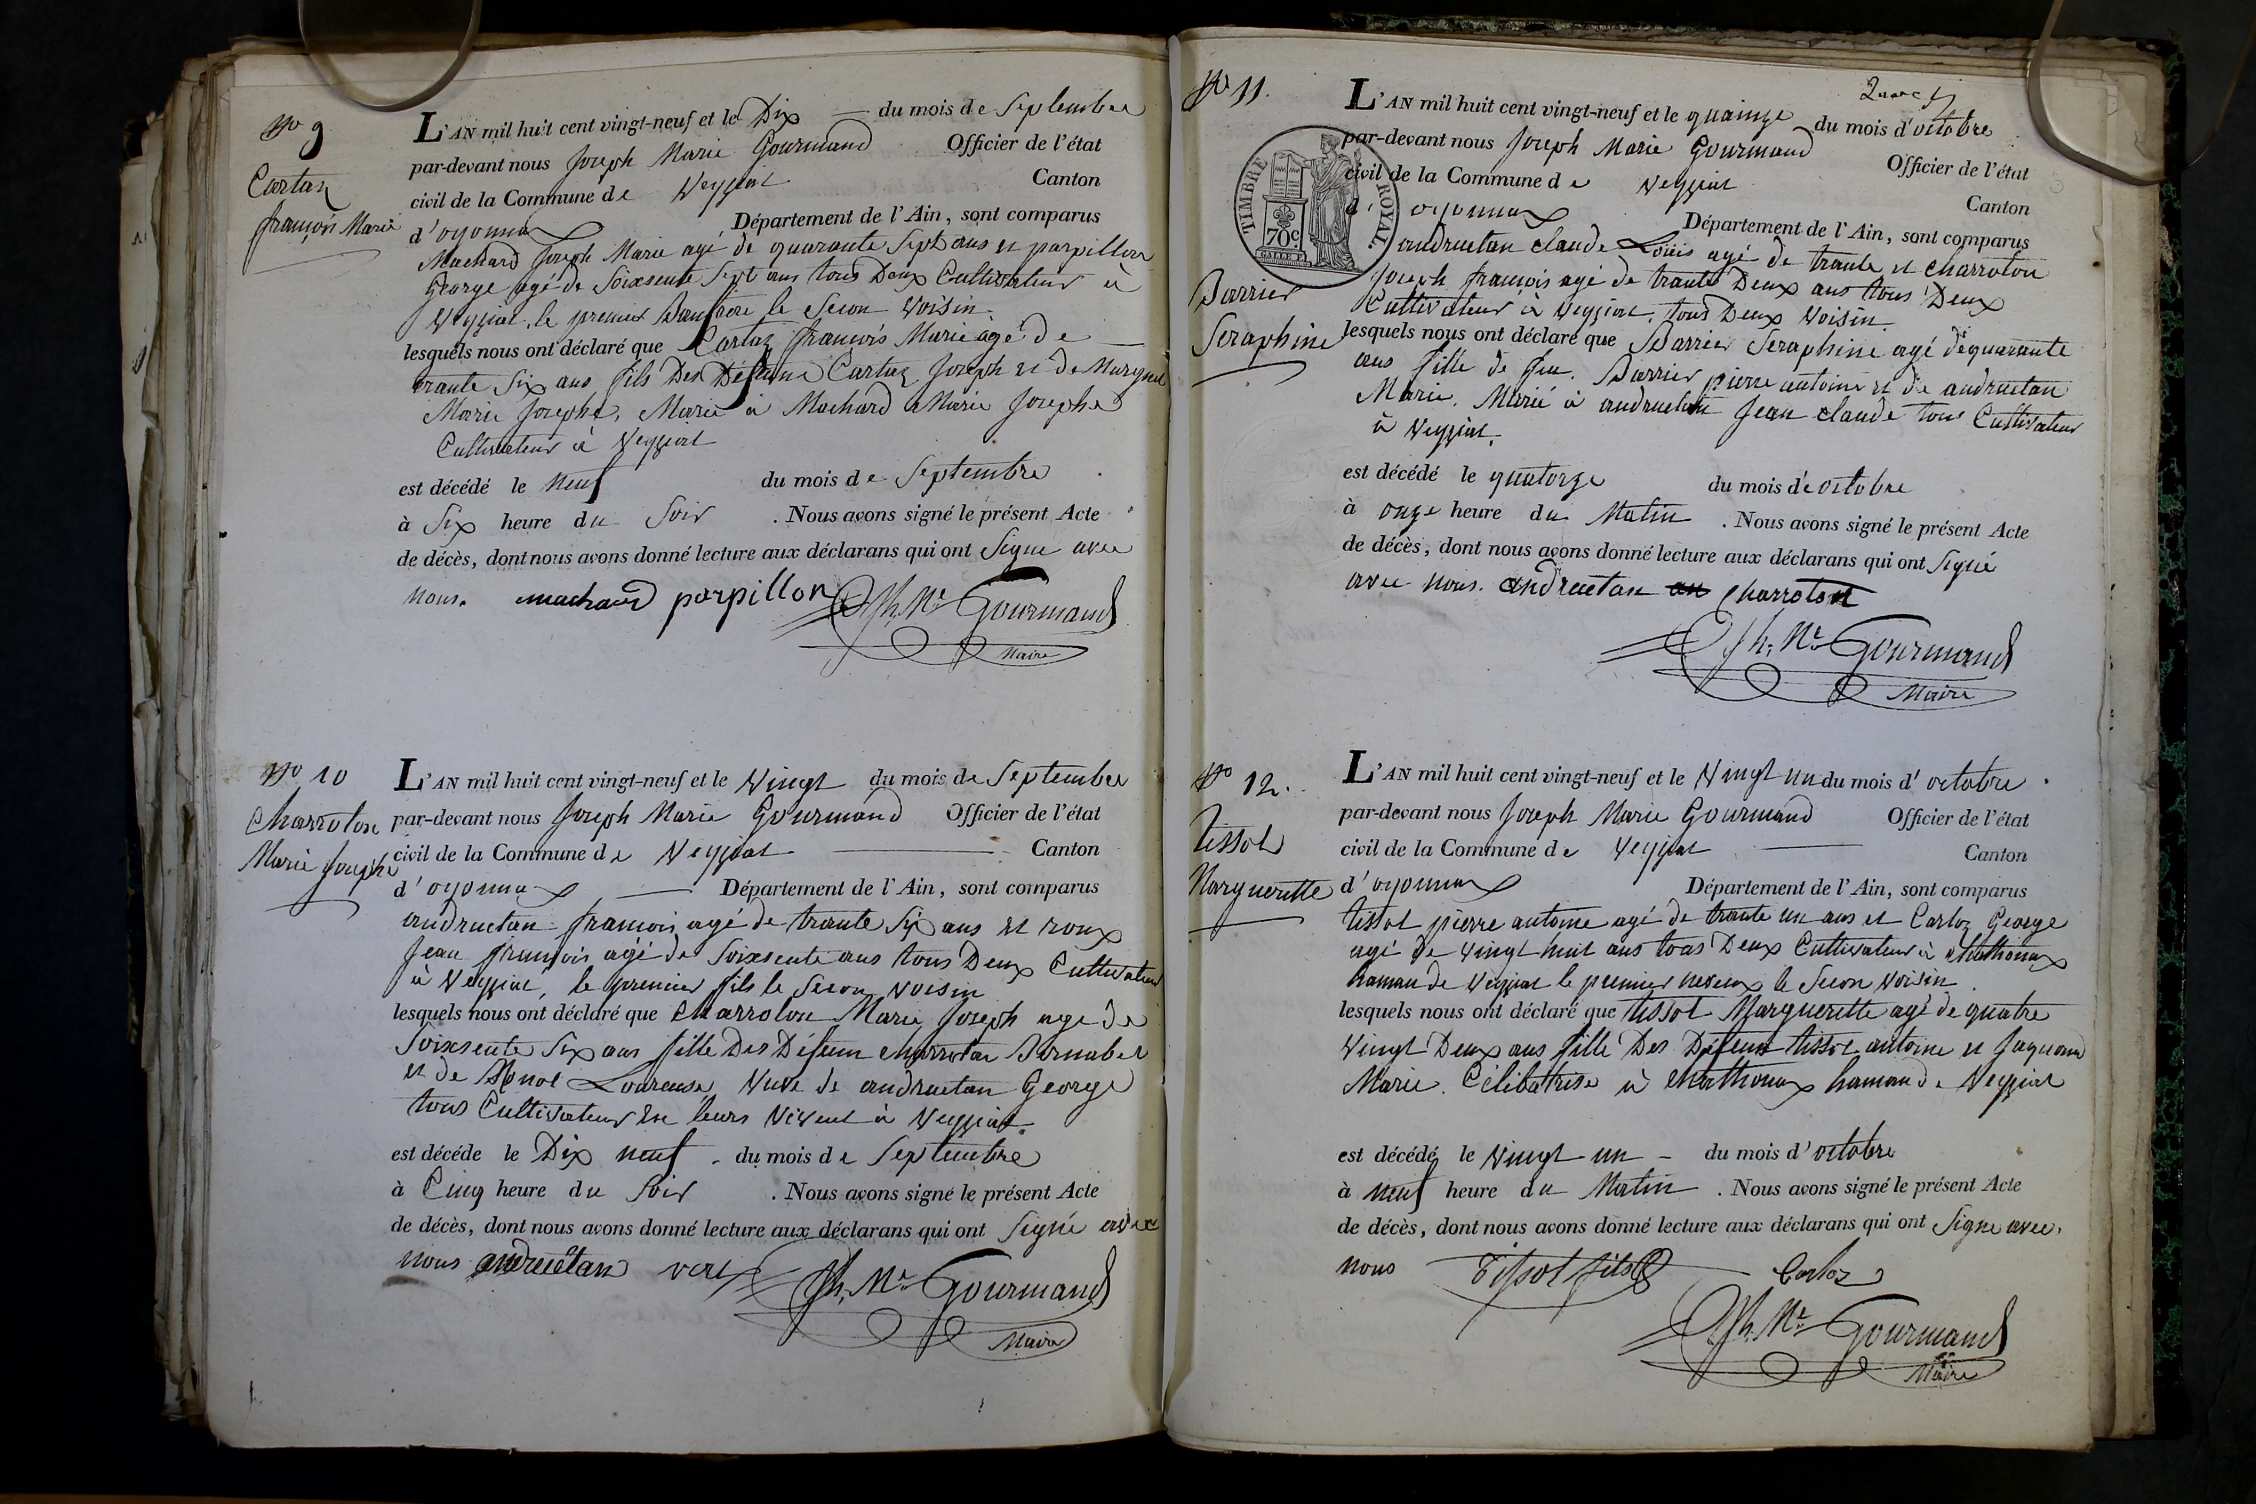 No 9
Cartaz
françois Marie
L'AN mil huit cent vingt-neuf et le Dix du mois de Septembre
par-devant nous Joseph Marie Gourmand Officier de l'état
civil de la Commune de Veyziat Canton
d'oyonnax Département de l'Ain, sont comparus
Machard Joseph Marie agé de quarante Sept ans et parpillon
George agé de Soixsente Sept ans tous Deux Cultivateur à
Veyziat, le premier Baufrere le Secon Voisin
lesquels nous ont déclaré que Cartaz françois Marie agé de
trante Six ans fils Des Défunt Cartaz Joseph et de
Marie Josephe, Marié à Machard Marie Josephe
Cultivateur à Veyziat
est décédé le neuf du mois de Septembre
à Six heure du Soir . Nous avons signé le présent Acte
de décès, dont nous avons donné lecture aux déclarans qui ont Signe avec
nous. machard parpillon Jph. Me. Gourmand
Maire
No 10
Charroton
Marie Josephe
L'AN mil huit cent vingt-neuf et le Vingt du mois de Septembre
par-devant nous Joseph Marie Gourmand Officier de l'état
civil de la Commune de Veyziat Canton
d'oyonnax Département de l'Ain, sont comparus
andruetan françois agé de trante Six ans et roux
Jean françois agé de Soixsente ans tous Deux Cultivateur
à Veyziat, le premier fils le Secon voisin
lesquels nous ont déclaré que Charroton Marie Joseph age de
Soixsente Six ans fille Des Défunt charroton Bernabel
et de Loureuse Veuve de andruetan George
tous Cultivateur en leurs Vivent à Veyziat.
est décéde le Dix neuf . du mois de Septembre
à Cinq heure du Soir . Nous avons signé le présent Acte
de décès, dont nous avons donné lecture aux déclarans qui ont Signé avec
nous andruetan Jph. Me. Gourmand
Maire
No 11.
Barrier
Seraphine
TIMBRE ROYAL
70c
L'AN mil huit cent vingt-neuf et le quainze du mois d'octobre
par-devant nous Joseph Marie Gourmand Officier de l'état
civil de la Commune de Veyziat Canton
d'oyonnax Département de l'Ain, sont comparus
andruetan claude Louis agé de trante et charroton
Joseph françois agé de trante Deux ans tous Deux
Cultivateur à Veyziat, tous Deux Voisin.
lesquels nous ont déclaré que Barrier Seraphine agé de quarante
ans fille de feu. Barrier pierre antoine et de andruetan
Marie. Marié à andruetan Jean claude tous Cultivateur
à Veyziat.
est décédé le quatorze du mois de octobre
à onze heure du Matin . Nous avons signé le présent Acte
de décès, dont nous avons donné lecture aux déclarans qui ont Signé
avec nous. andruetan charroton
Jph. Me. Gourmand
Maire
No 12.
Tissot
Margueritte
L'AN mil huit cent vingt-neuf et le Vingt un du mois d'octobre
par-devant nous Joseph Marie Gourmand Officier de l'état
civil de la Commune de Veyziat Canton
d'oyonnax Département de l'Ain, sont comparus
tissot pierre antoine agé de trante un ans et Carloz George
agé de Vingt huit ans tous Deux Cultivateur à Mathonax
hamau de Veyziat le premier neveux le Secon Voisin
lesquels nous ont déclaré que tissot Margueritte agé de quatre
Vingt Deux ans fille Des Défunt tissot antoine et
Marie. Célibatrise à Mathonax hamau de Veyziat
est décédé le Vingt un du mois d'octobre
à neuf heure du Matin . Nous avons signé le présent Acte
de décès, dont nous avons donné lecture aux déclarans qui ont Signe avec
nous Tissot fils Carloz
Jph. Me. Gourmand
Maire